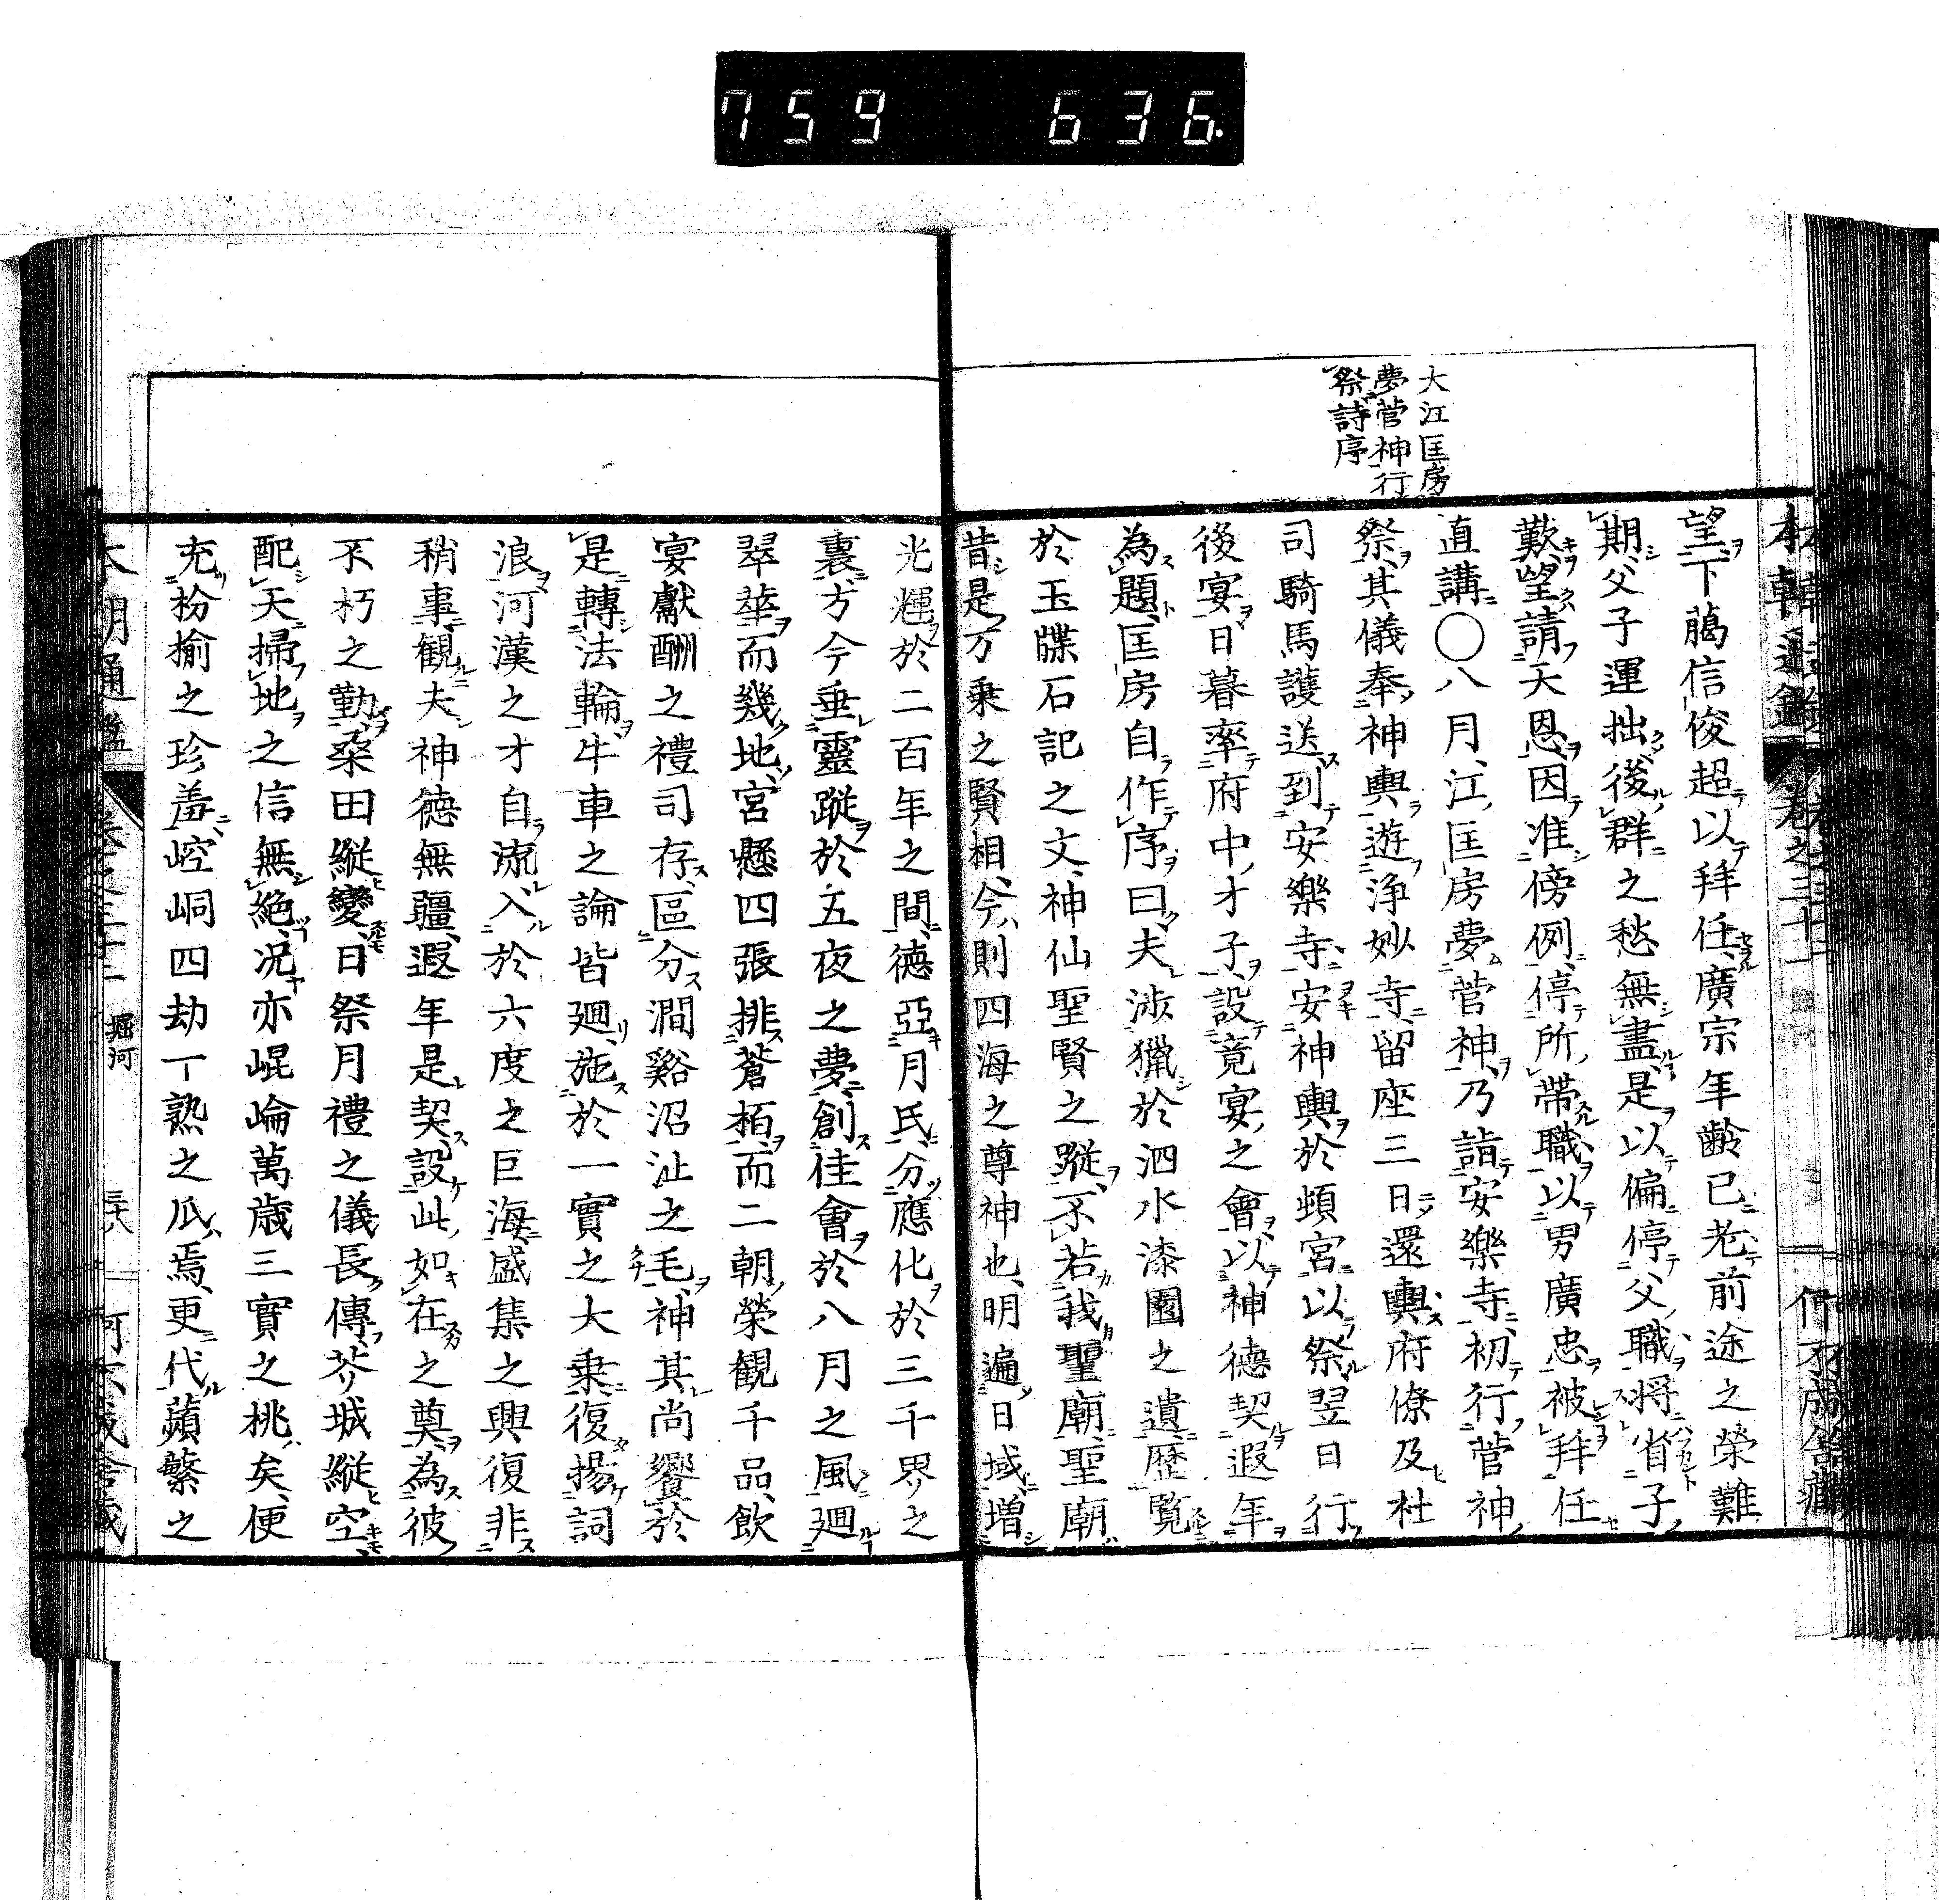 759 636.
大江匡房
夢菅神行
祭詩序
望下﨟信俊超以拜任廣宗年齡已老前途之榮難
期父子運拙後群之愁無盡是以偏停父職将省子
歎望請天恩因准傍例停所帶職以男廣忠被拜任
直講〇八月江匡房夢菅神乃詣安樂寺初行菅神
祭其儀奉神輿遊淨妙寺留座三日還輿府僚及社
司騎馬護送到安樂寺安神輿於頓宮以祭翌日行
後宴日暮率府中才子設竟宴之會以神德契遐年
為題匡房自作序曰夫渉獵於泗水漆園之遺歷覽
於玉牒石記之文神仙聖賢之蹤不若我聖廟聖廟
昔是万乗之賢相今則四海之尊神也明遍日域増
光輝於二百年之間德亞月氏分應化於三千界之
裏方今垂靈蹤於五夜之夢創佳會於八月之風廻
翠華而幾地宮懸四張排蒼栢而二朝榮観千品飲
宴獻酬之禮司存區分澗谿沼沚之毛神其尚饗於
是轉法輪牛車之論皆廻施於一實之大乗復揚詞
浪河漢之才自流入於六度之巨海盛集之興復非
稍事観夫神德無疆遐年是契設此如在之奠為彼
不朽之勤桒田縦變日祭月禮之儀長傳芥城縦空
配天掃地之信無絶况亦崐崘萬歳三實之桃矣便
充枌榆之珍羞崆峒四劫一熟之瓜焉更代蘋蘩之
本朝通鑑
堀河
三十八